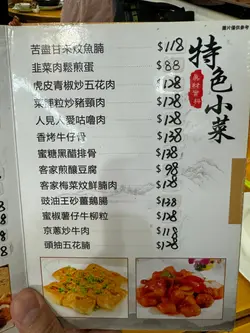 圖片僅供參考
特色小菜
真材實料
苦盡甘來炆魚腩 $118
韭菜肉鬆煎蛋 $88
虎皮青椒炒五花肉 $128
菜脯粒炒豬頸肉 $128
人見人愛咕嚕肉 $128
香烤牛仔骨 $138
蜜糖黑醋排骨 $128
客家煎釀豆腐 $98
客家梅菜炆鮮腩肉 $128
豉油王砂薑鵝腸 $138
蜜椒薯仔牛柳粒 $128
京蔥炒牛肉 $118
頭抽五花腩 $128